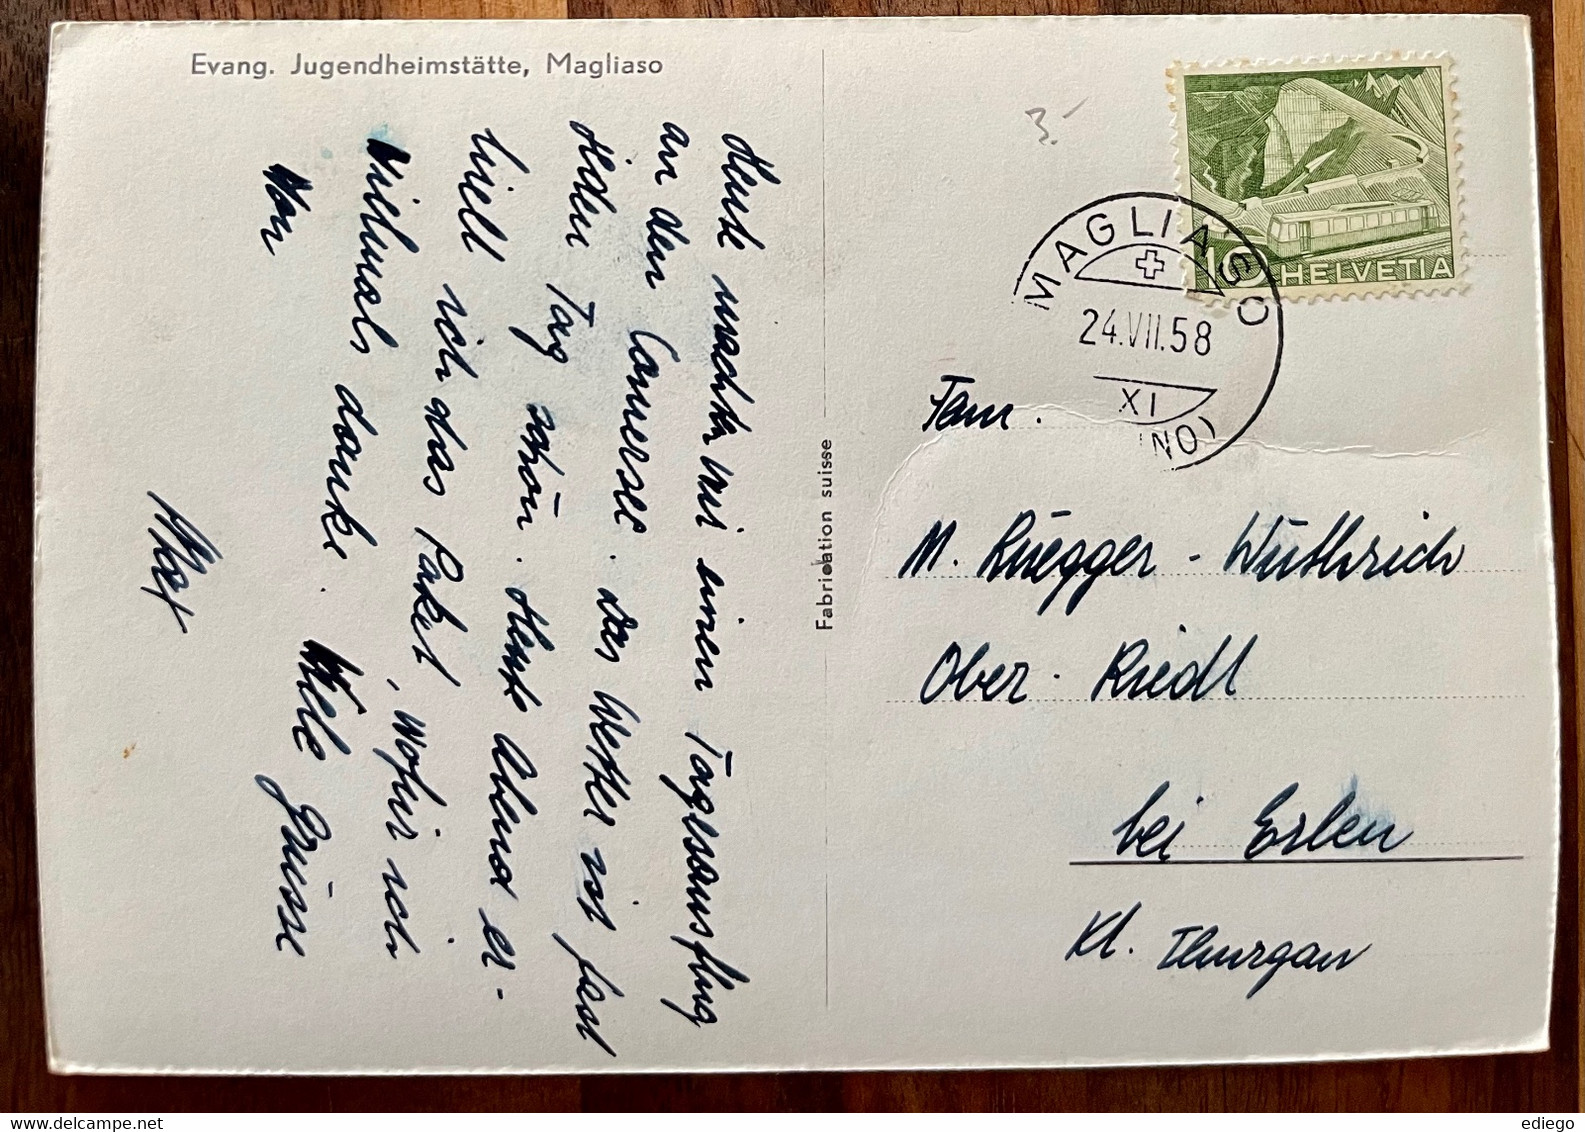 Evang. Jugendheimstätte, Magliaso
Heute machten wir einen Tagesausflug
an den Comersee. Das Wetter ist fast
jeden Tag schön. Heute Abend er-
hielt ich das Paket, wofür ich
vielmals danke. Viele Grüsse
von
Fabrication suisse
3.-
10 HELVETIA
MAGLIASO
24.VII.58
XI
(INO)
Fam.
M. Rüegger-Wüthrich
Ober-Riedt
bei Erlen
Kt. Thurgau
ediego